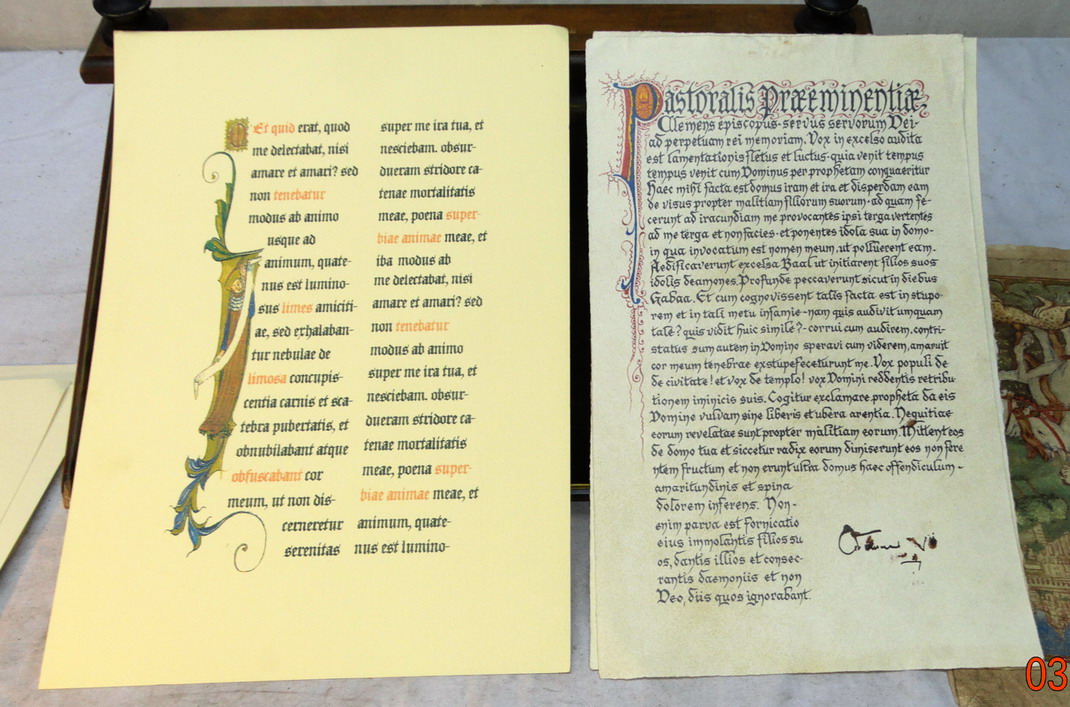 Et quid erat, quod
me delectabat, nisi
amare et amari? sed
non tenebatur
modus ab animo
usque ad
animum, quate-
nus est lumino-
sus limes amiciti-
ae, sed exhalaban-
tur nebulae de
limosa concupis-
centia carnis et sca-
tebra pubertatis, et
obnubilabant atque
obfuscabant cor
meum, ut non dis-
cerneretur
serenitas
super me ira tua, et
nesciebam. obsur-
dueram stridore ca-
tenae mortalitatis
meae, poena super-
biae animae meae, et
iba modus ab
me delectabat, nisi
amare et amari? sed
non tenebatur
modus ab animo
super me ira tua, et
nesciebam. obsur-
dueram stridore ca-
tenae mortalitatis
meae, poena super-
biae animae meae, et
animum, quate-
nus est lumino-
Pastoralis Præeminentiæ
Clemens episcopus·servus servorum Dei·
ad perpetuam rei memoriam. Vox in excelso audita
est lamentationis fletus et luctus·quia venit tempus
tempus venit cum Dominus per prophetam conquaeritur
Haec mihi facta est domus iram et ira et disperdam eam
de visus propter malitiam filiorum suorum·ad quam fe-
cerunt ad iracundiam me provocantes ipsi terga vertentes
ad me terga et non facies·et ponentes idola sua in domo·
in qua invocatum est nomen meum, ut polluerent eam.
Aedificaverunt excelsa Baal ut initiarent filios suos
idolis deamones. Profunde peccaverunt sicut in diebus
Gabaa. Et cum cognovissent talis facta est in stupo-
rem et in tali metu insamie-nam quis audivit umquam
tale? quis vidit huic simile?-corrui cum audirem, contri-
status sum autem in Domino speravi cum viderem, amaruit
cor meum tenebrae exstupefeceturunt me. Vox populi de
de civitate! et vox de templo! vox Domini reddentis retribu
tionem iminicis suis. Cogitur exclamare, propheta da eis
Domine vulvam sine liberis et ubera arentia. Nequitiae
eorum revelatae sunt propter malitiam eorum. Mittent eos
de domo tua et siccetur radix eorum diminiserunt eos non fere
ntem fructum et non erunt ultra domus haec offendiculum-
amaritundinis et spina
dolorem inferens. Non-
enim parva est fornicatio
eius immolantis filios su
os, dantis illios et consec-
rantis daemoniis et non
Deo, diis quos ignorabant.
03